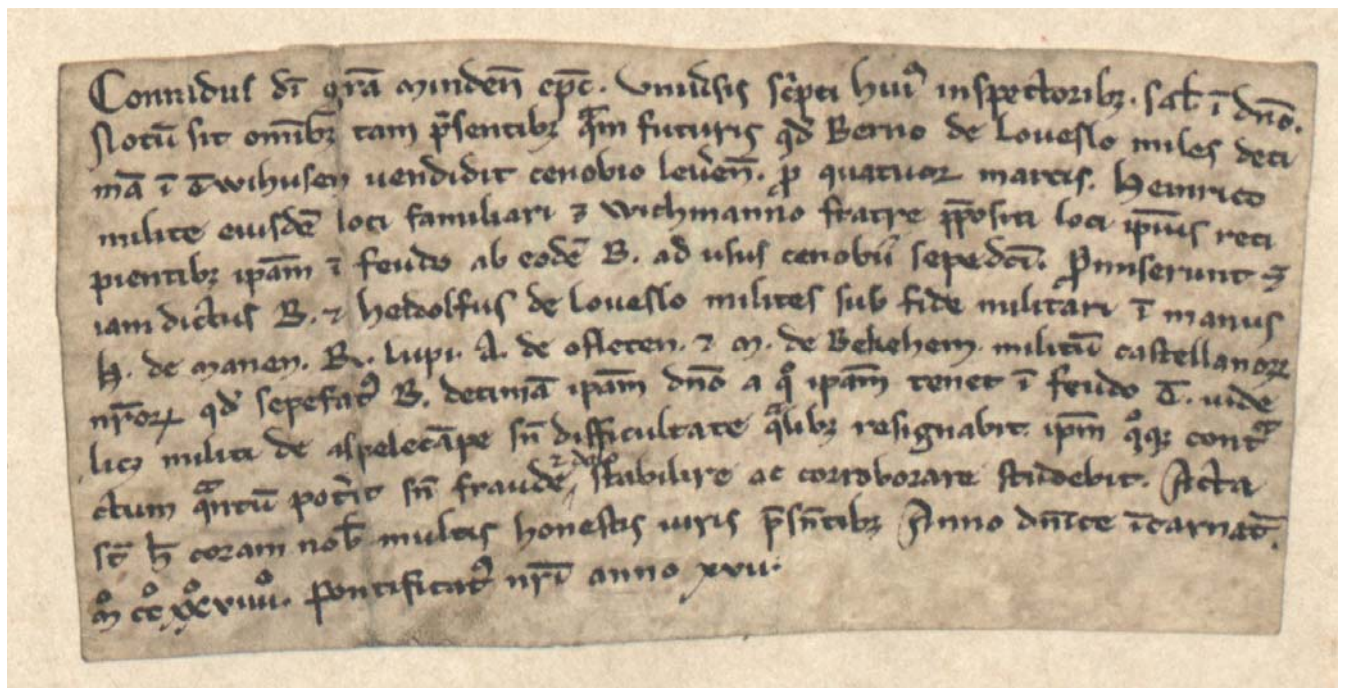 Conradus dī gr̄a mindeñ ep̄c. Vniu̾sis sc̾pti hui᷒ inspectoribꝫ. sal̄ ī dn̄o.
Notū sit om̄ibꝫ tam p̄sentibꝫ qͣm futuris qd̾ Berno de Loueslo miles deci
mā ī Ewihusen uendidit cenobio leueñ. ꝓ quatuor marcis. Heinrico
milite eiusdē loci familiari ⁊ Wichmanno fratre p̄positi loci ip̄ius reci
pientibꝫ ip̄am ī feudo ab eodē B. ad usus cenobii sepedc̄i. Promiserunt ⁊
iam dictus B. ⁊ Heidolfus de Loueslo milites sub fide militari ī manus
H. de manen. R. lupi. A. de osleten. ⁊ M. de Bekehem. militū castellanoꝝ
nr̄oꝝ qd̾ sepefat᷒ B. decimā ip̄am dn̄o a qͦ ip̄am tenet ī feudo E. uide
licꝫ militi de aspelecāpe sn̄ difficultate qͣlibꝫ resignabit ip̄m qͦqꝫ contͣ
ctum qͣntū pot̾it sn̄ fraude ⁊ dolo stabilire ac corroborare studebit. Acta
st̄ h̄ coram nob̄ multis honestis uiris p̄sn̄tibꝫ Anno dn̄ice īcarnat̄.
mͦ ccͦ xxͦxviiiiͦ. Pontificat᷒ nr̄i anno xvii.